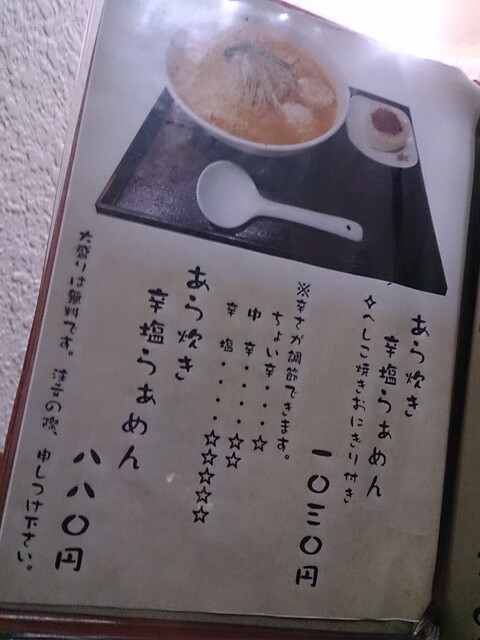 あら炊き
辛塩らぁめん
☆へしこ焼きおにぎり付き
一〇三〇円
※辛さが調節できます。
ちょい辛・・・・☆
中 辛・・・・☆☆
辛 塩・・・・☆☆☆☆☆
あら炊き
辛塩らぁめん
八八〇円
大盛りは無料です。注文の際、申しつけ下さい。